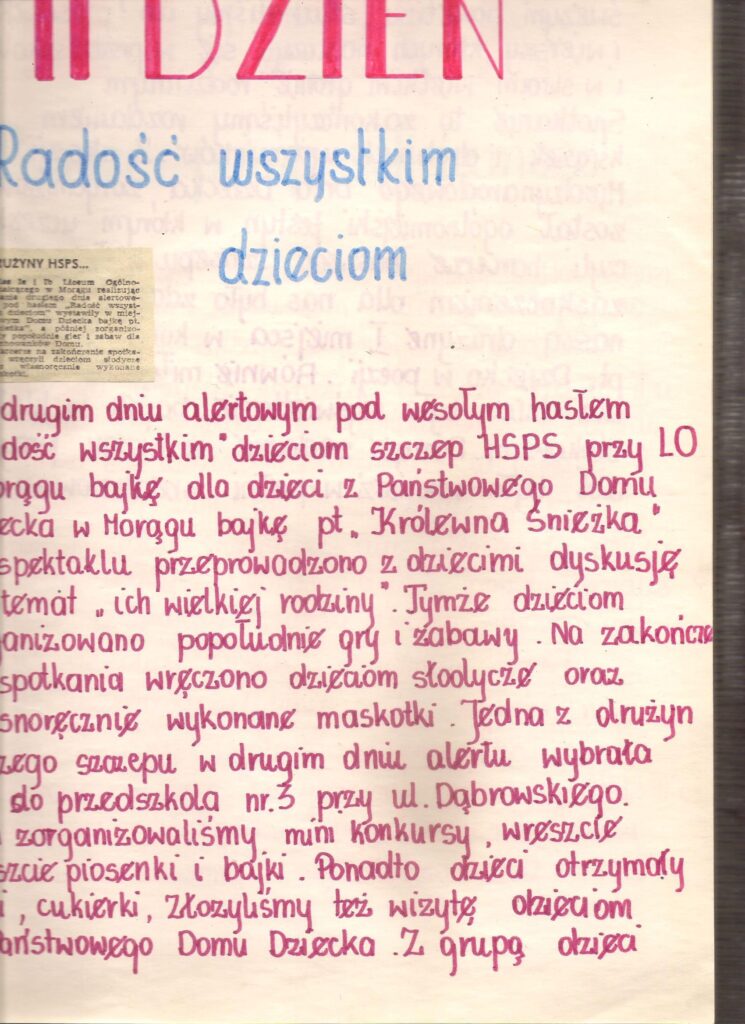 II DZIEŃ
Radość wszystkim
dzieciom
RUŻYNY HSPS...
Ie i Ib Liceum Ogólno-
kształcącego w Morągu realizując
drugiego dnia alertowe-
pod hasłem „Radość wszyst-
dzieciom" wystawiły w miej-
Domu Dziecka bajkę pt.
a później zorganizo-
popołudnie gier i zabaw dla
Domu.
na zakończenie spotka-
wręczyli dzieciom słodycze
własnoręcznie wykonane
drugim dniu alertowym pod wesołym hasłem
dość wszystkim" dzieciom szczep HSPS przy LO
orągu bajkę dla dzieci z Państwowego Domu
ecka w Morągu bajkę pt. „Królewna Śnieżka"
spektaklu przeprowadzono z dziećimi dyskusję
temat „ich wielkiej rodziny". Tymże dzieciom
ganizowano popołudnie gry i zabawy. Na zakończe
spotkania wręczono dzieciom słodycze oraz
snoręcznie wykonane maskotki. Jedna z drużyn
zego szczepu w drugim dniu alertu wybrała
do przedszkola nr. 3 przy ul. Dąbrowskiego.
zorganizowaliśmy mini konkursy, wreszcie
szcie piosenki i bajki. Ponadto dzieci otrzymały
i, cukierki, Złożyliśmy też wizytę dzieciom
aństwowego Domu Dziecka. Z grupą dzieci